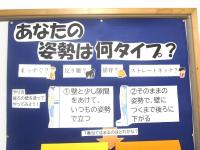 あなたの
姿勢は何タイプ?
まっすぐ?
反り腰?
猫背?
ストレートネック?
①壁と少し隙間
をあけて、
いつもの姿勢
で立つ
②そのままの
姿勢で、壁に
つくまで後ろに
下がる